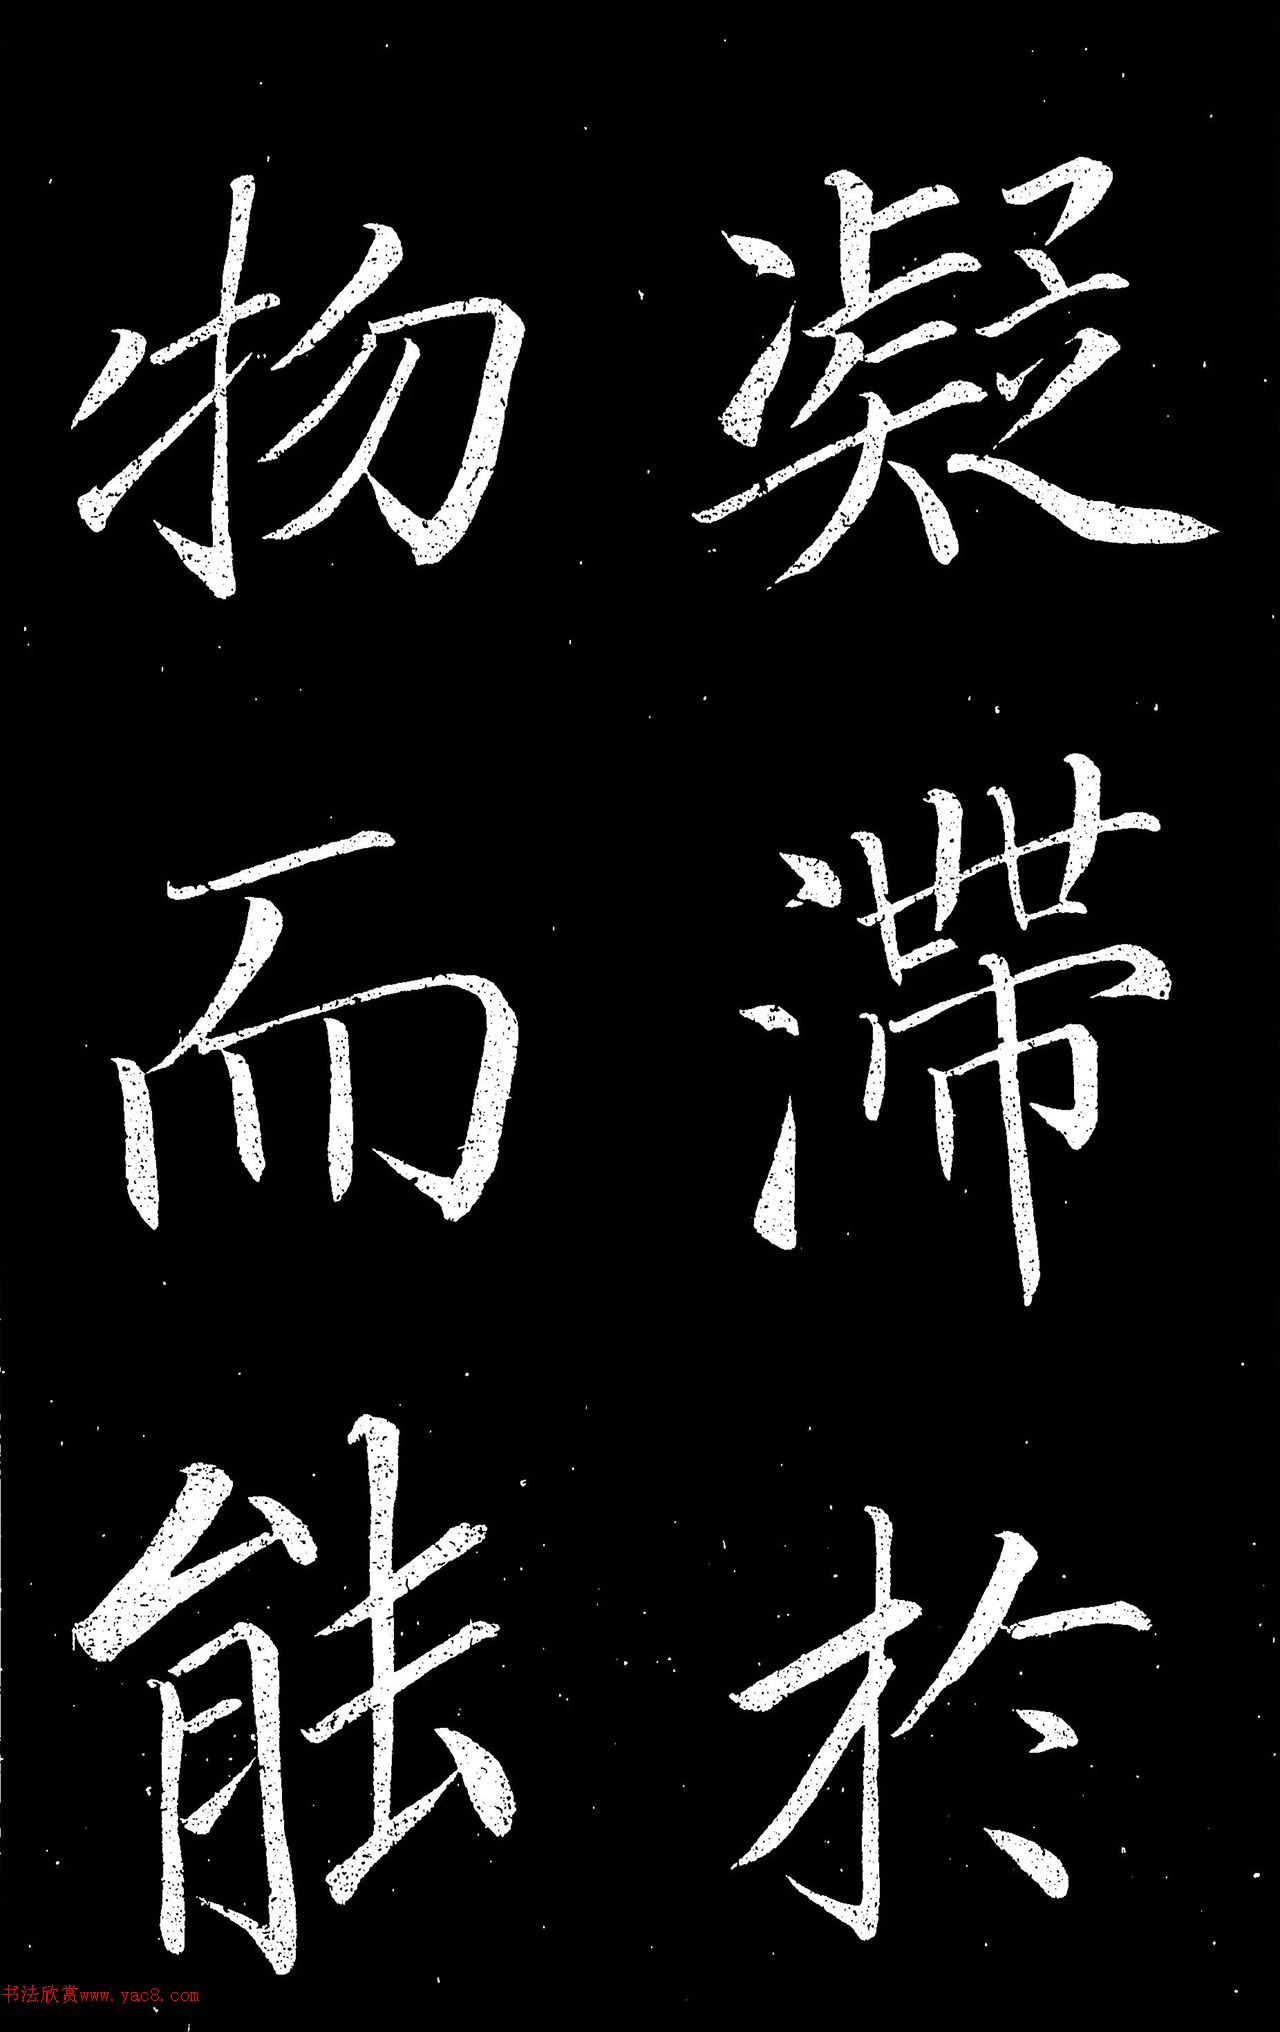 凝滞於
物而能
书法欣赏www.yac8.com